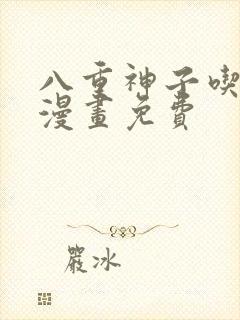 八重神子喫
漫畫免費
嚴冰